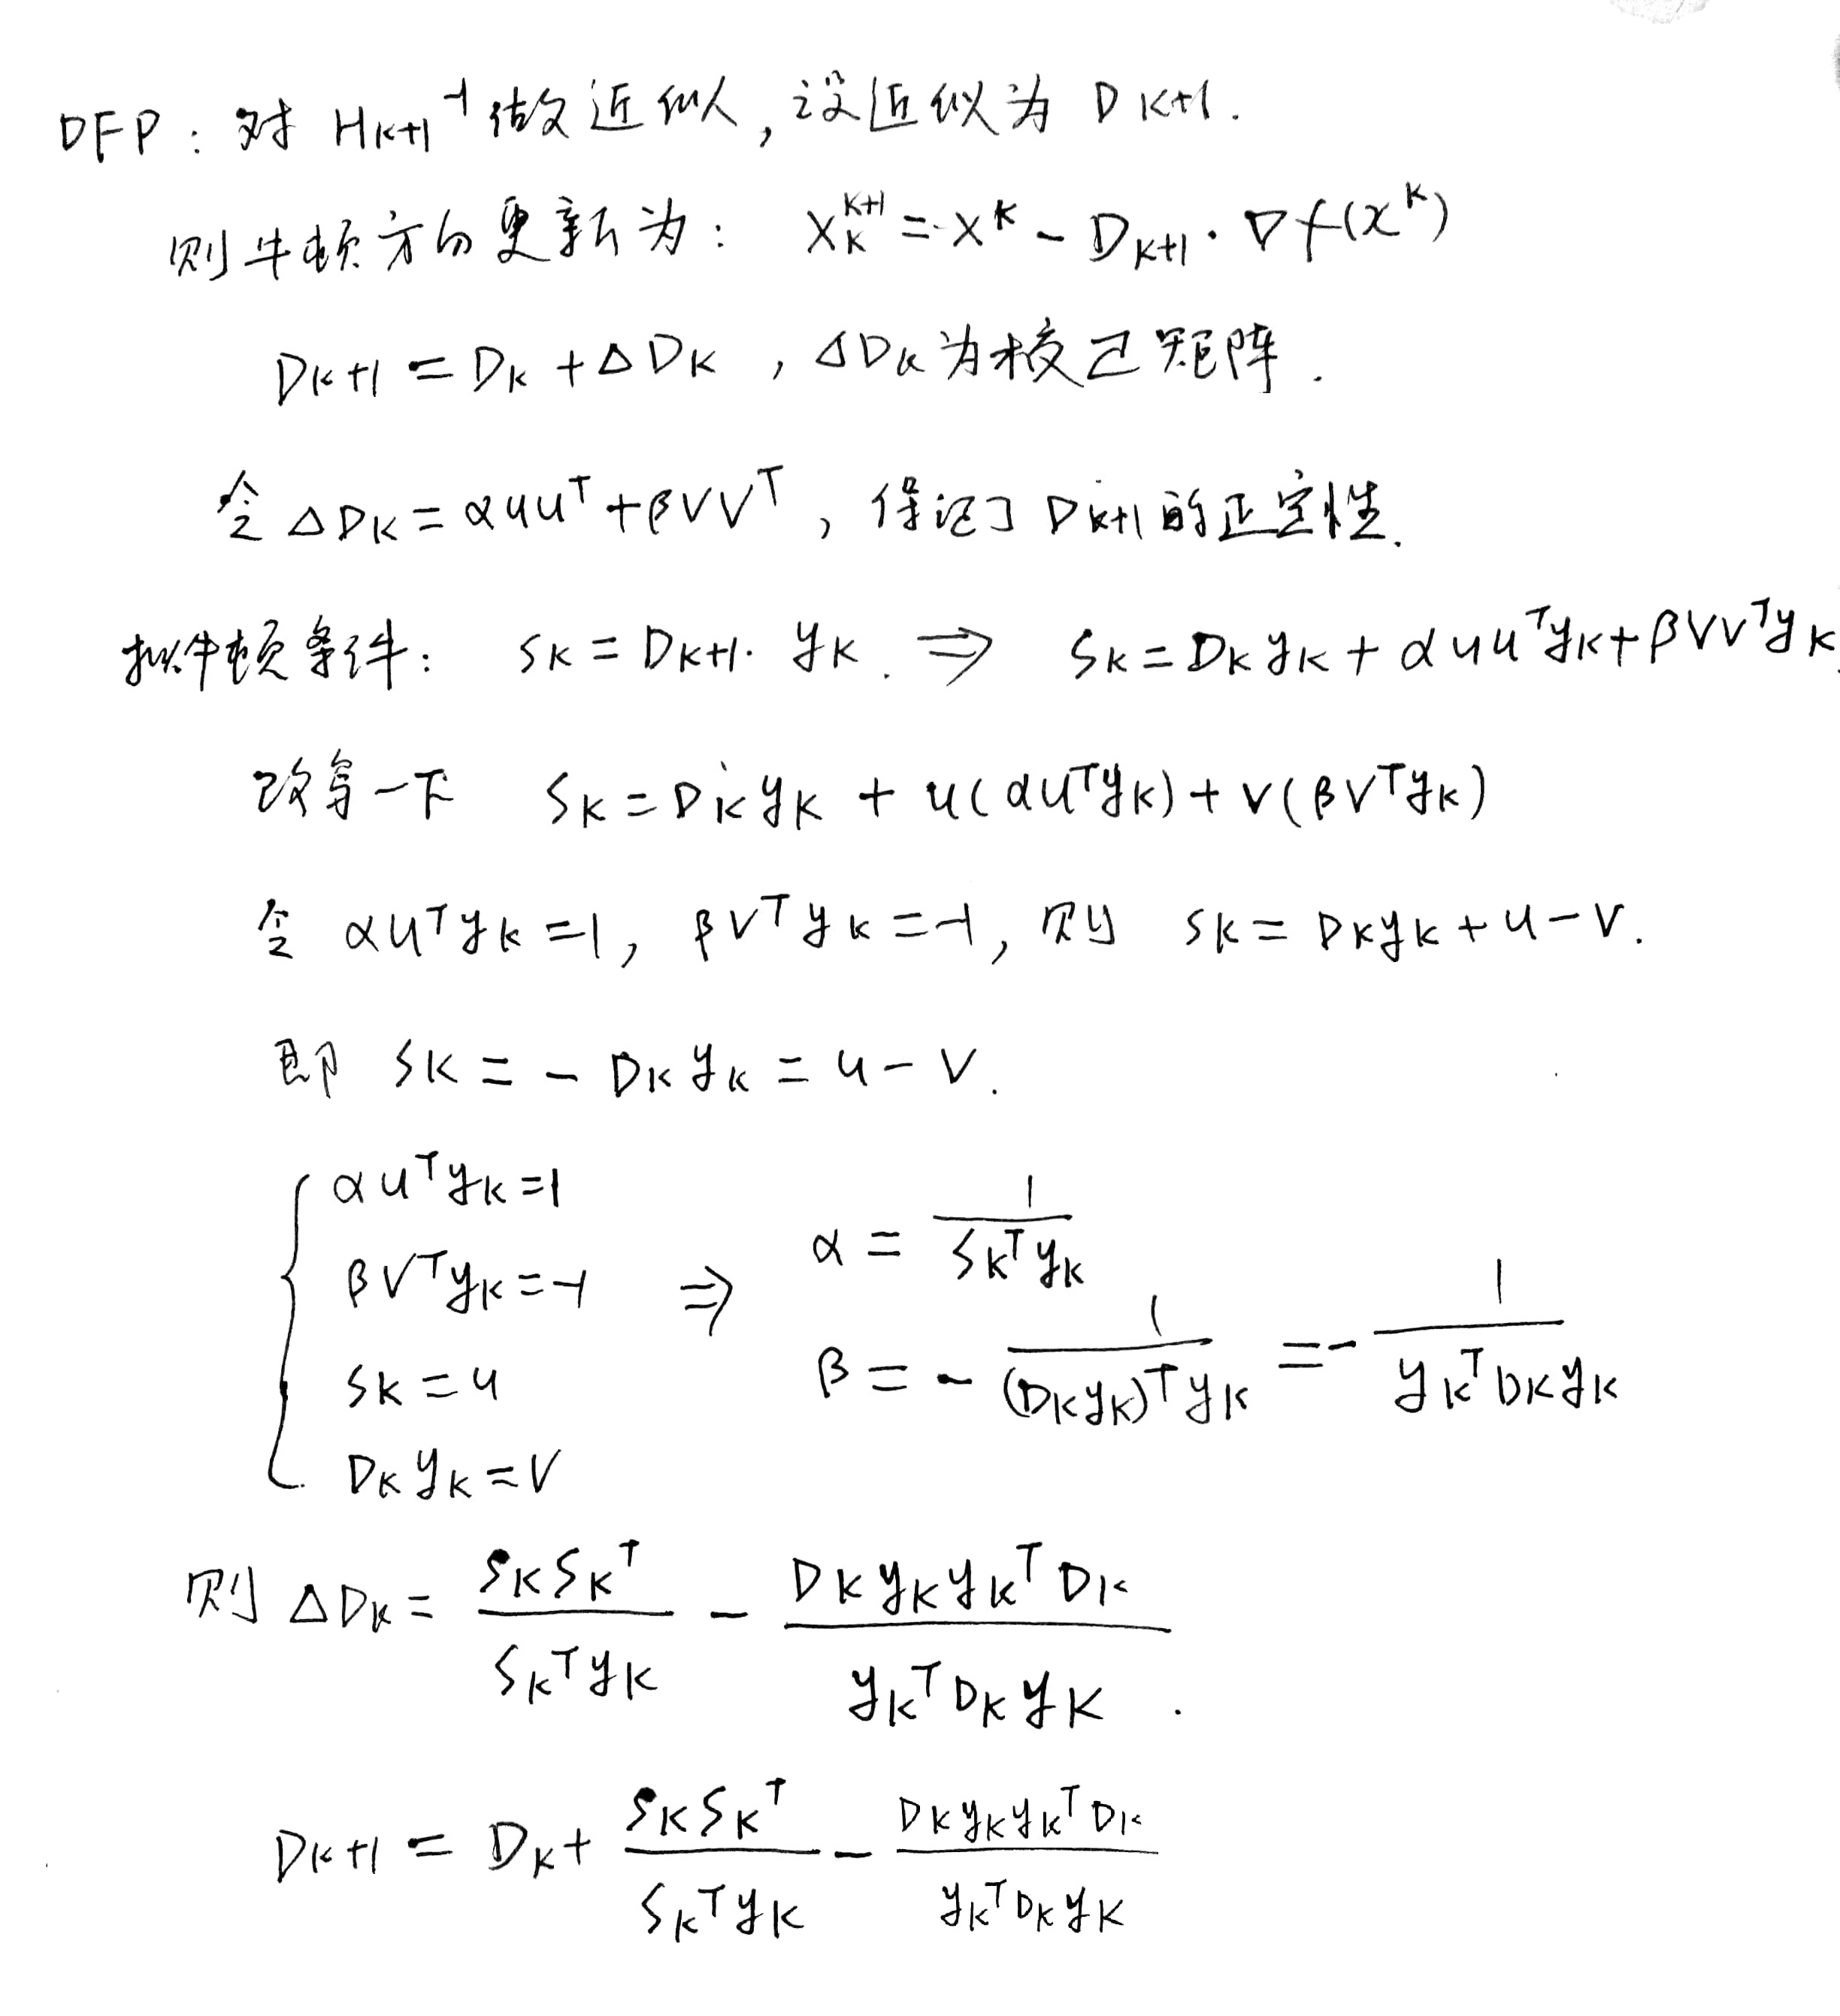 DFP：对 H_{k+1}^{-1} 做近似，设近似为 D_{k+1}.
则牛顿方向更新为： x_k^{k+1} = x^k - D_{k+1} · ∇f(x^k)
D_{k+1} = D_k + ΔD_k ，ΔD_k 为校正矩阵.
令 ΔD_k = αuu^T + βvv^T ，保证了 D_{k+1} 的正定性.
拟牛顿条件： s_k = D_{k+1} · y_k. ⇒ s_k = D_k y_k + αuu^T y_k + βvv^T y_k.
改写一下 s_k = D_k y_k + u(αu^T y_k) + v(βv^T y_k)
令 αu^T y_k = 1, βv^T y_k = -1, 则 s_k = D_k y_k + u - v.
即 s_k = - D_k y_k = u - v.
{ αu^T y_k = 1
βv^T y_k = -1
s_k = u
D_k y_k = v
⇒ α = \frac{1}{s_k^T y_k}
β = - \frac{1}{(D_k y_k)^T y_k} = - \frac{1}{y_k^T D_k y_k}
则 ΔD_k = \frac{s_k s_k^T}{s_k^T y_k} - \frac{D_k y_k y_k^T D_k}{y_k^T D_k y_k} .
D_{k+1} = D_k + \frac{s_k s_k^T}{s_k^T y_k} - \frac{D_k y_k y_k^T D_k}{y_k^T D_k y_k}